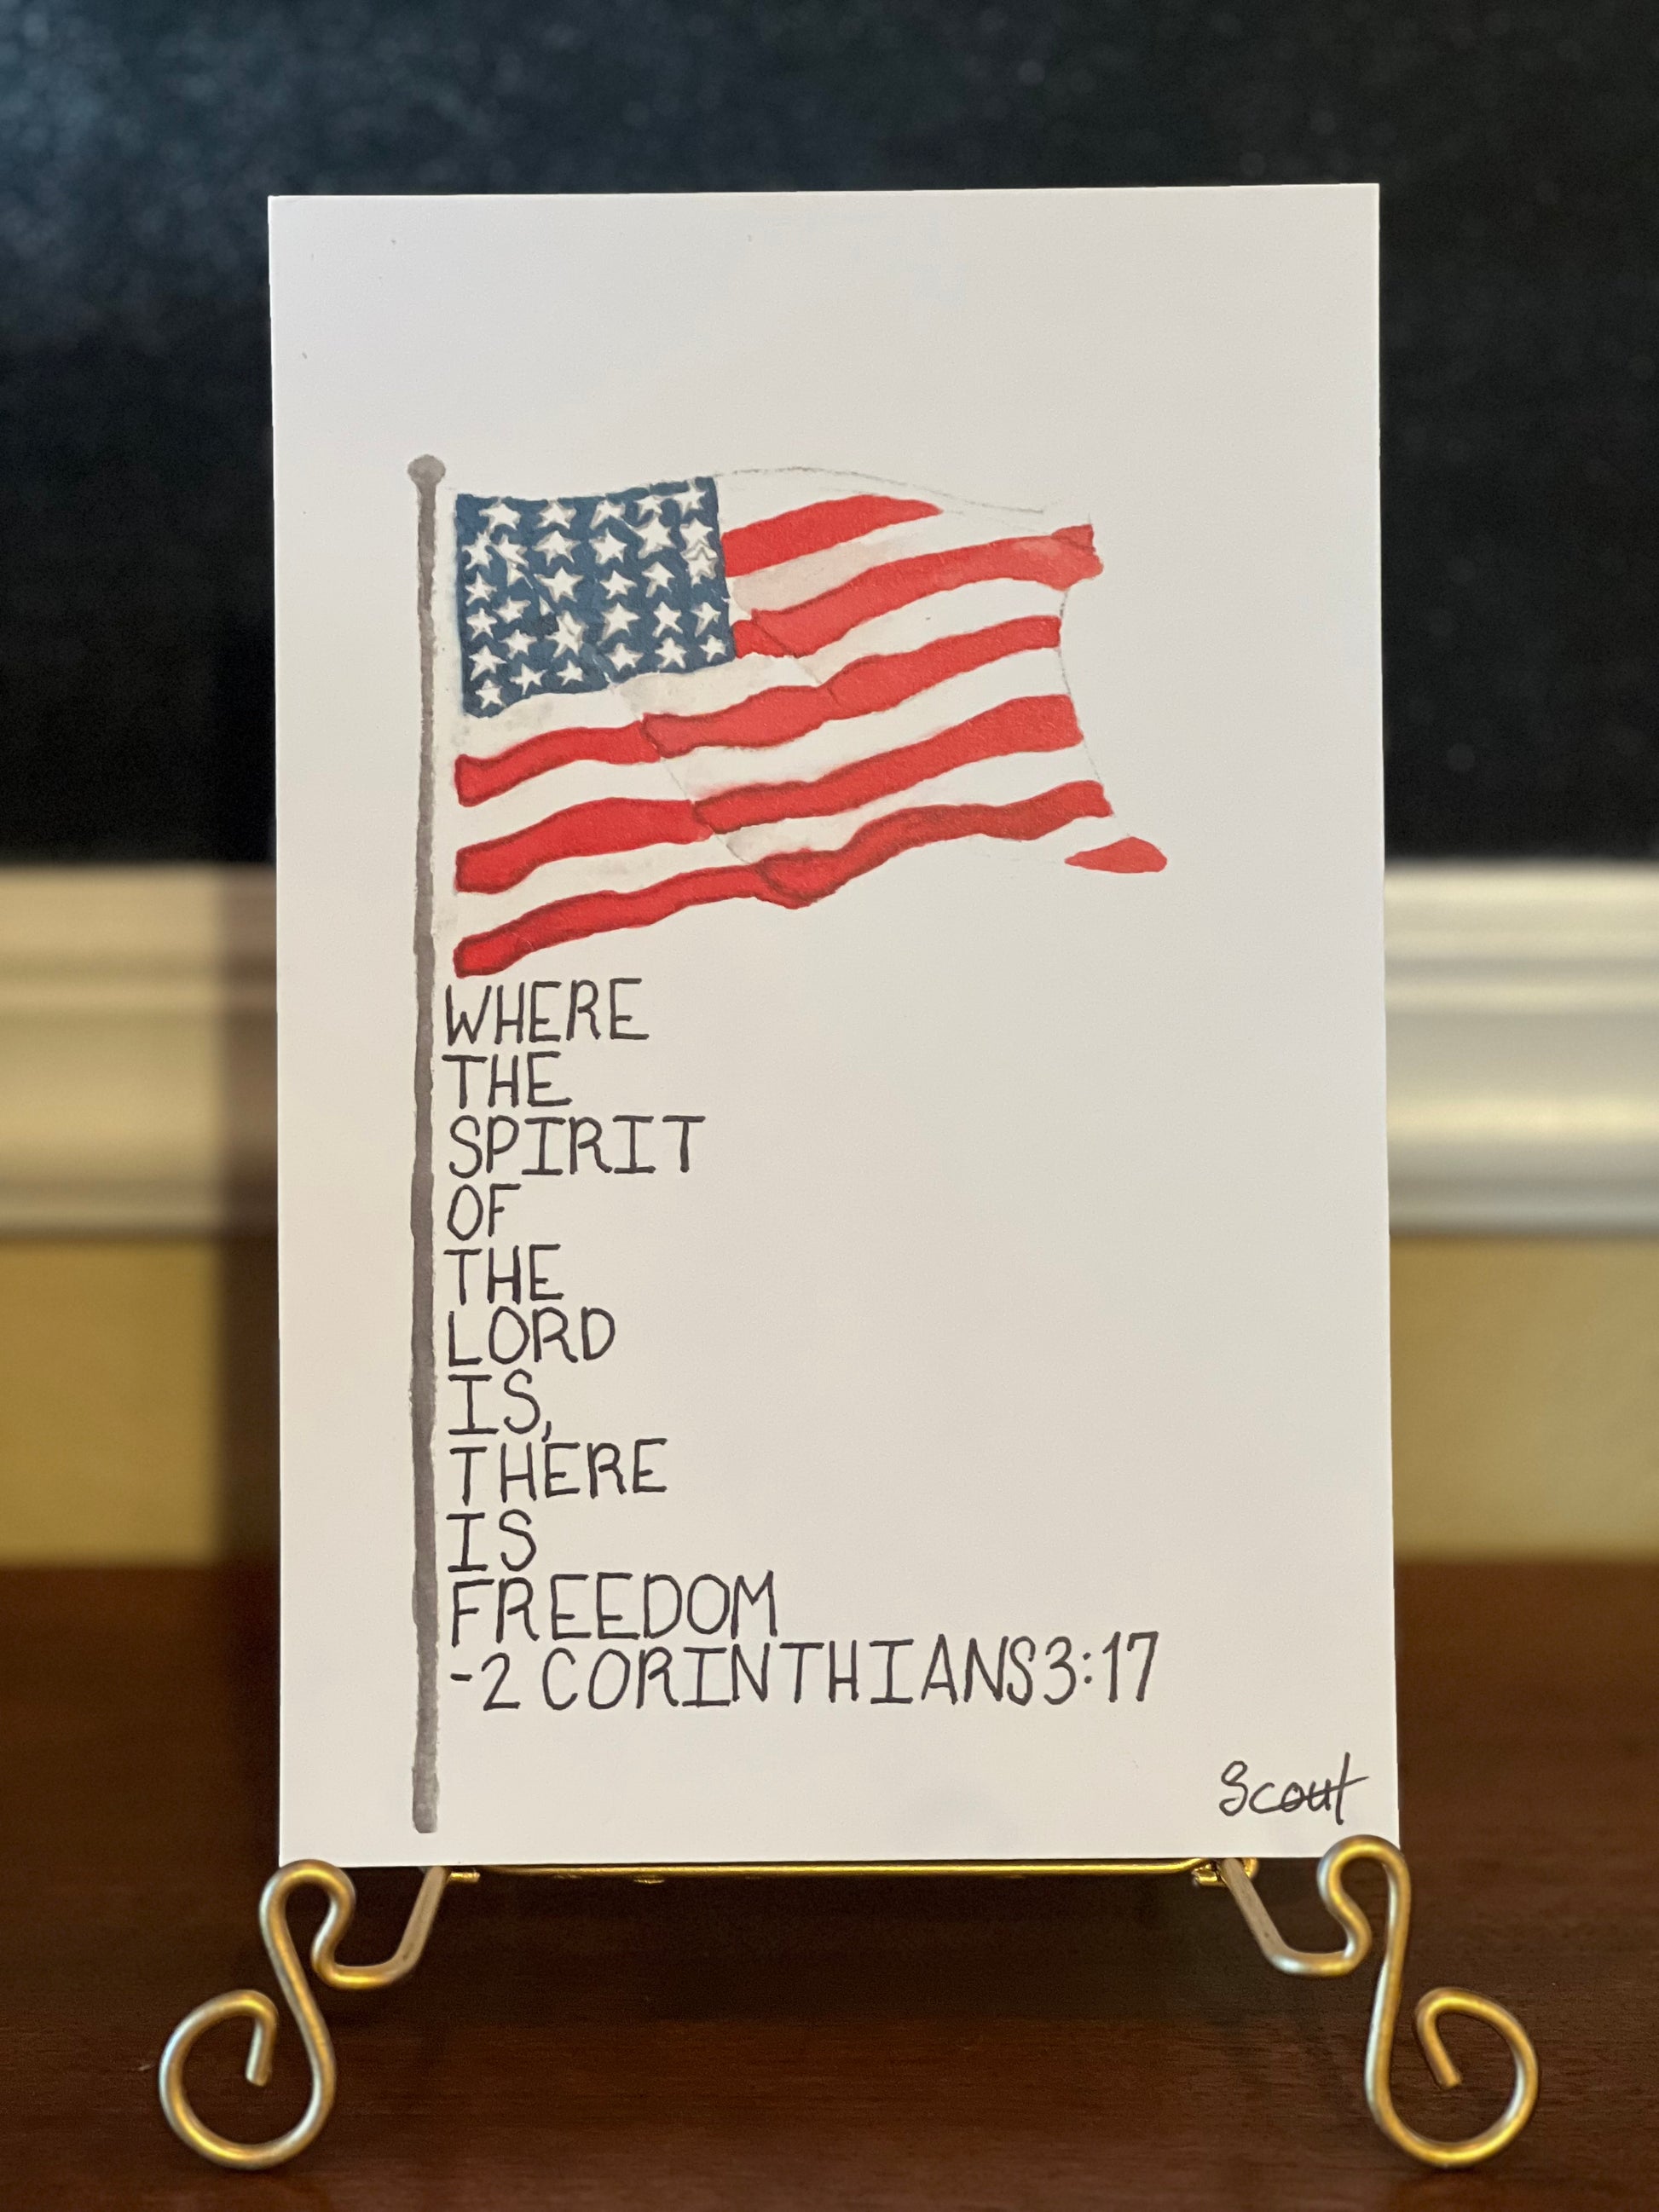 WHERE
THE
SPIRIT
OF
THE
LORD
IS,
THERE
IS
FREEDOM
-2 CORINTHIANS 3:17
Scout